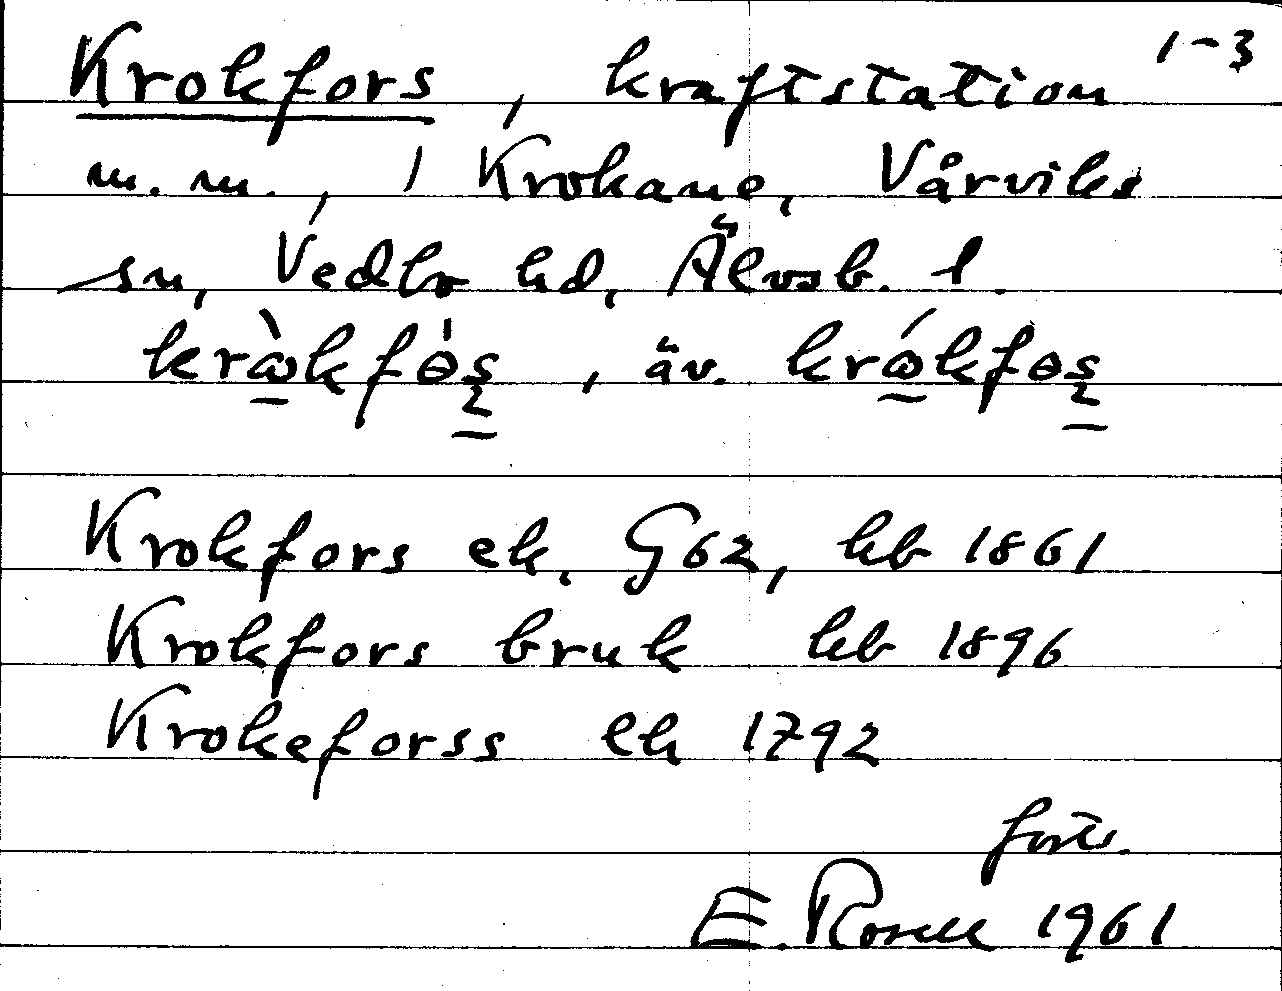 Krokfors, kraftstation 1-3
m. m., i Krokane, Vårviks
sn, Vedbo hd, Älvsb. l.
, äv.
Krokfors ek. G62, hb 1861
Krokfors bruk hb 1896
Krokeforss ek 1792
forts.
E. Rosell 1961